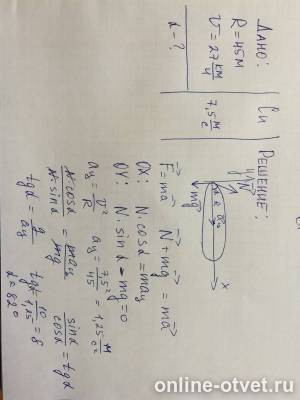 Дано:
R = 45м
V = 27 км/ч
α - ?
Си
7,5 м/с
Решение:
y
N
α
aц
mg
x
F = ma    N + mg = ma
OX: N·cosα = maц
OY: N·sinα - mg = 0
aц = V²/R    aц = 7,5²/45 = 1,25 м/с²
N·cosα/N·sinα = maц/mg    sinα/cosα = tgα
tgα = g/aц    tgα = 10/1,25 = 8
α = 82°
online-otvet.ru